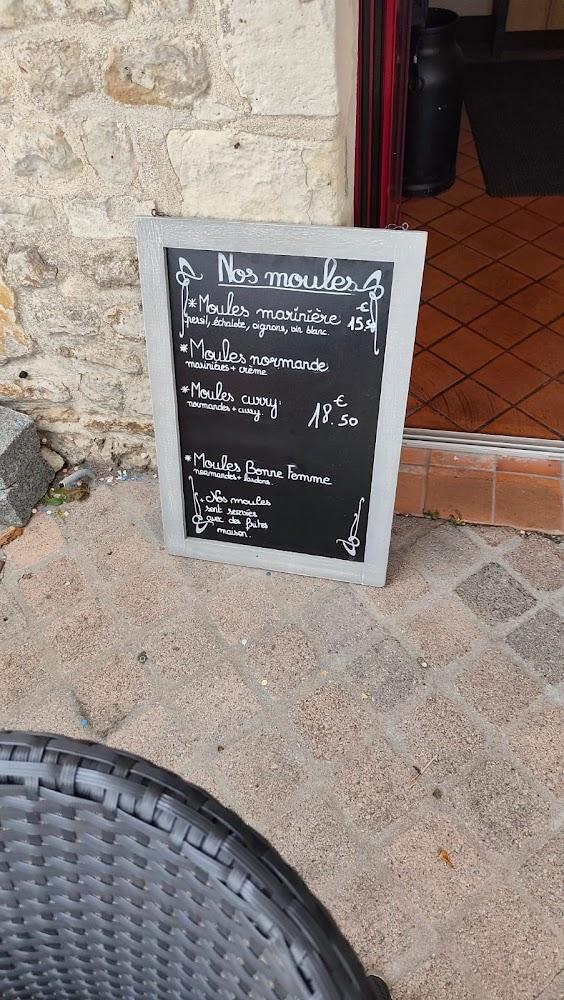 Nos moules
* Moules marinière 15.50 €
persil, échalote, oignons, vin blanc.
* Moules normande
marinières + crème
* Moules curry:
normandes + curry.
18.50 €
* Moules Bonne Femme
normandes + lardons.
+ Nos moules
sont servies
avec des frites
maison.